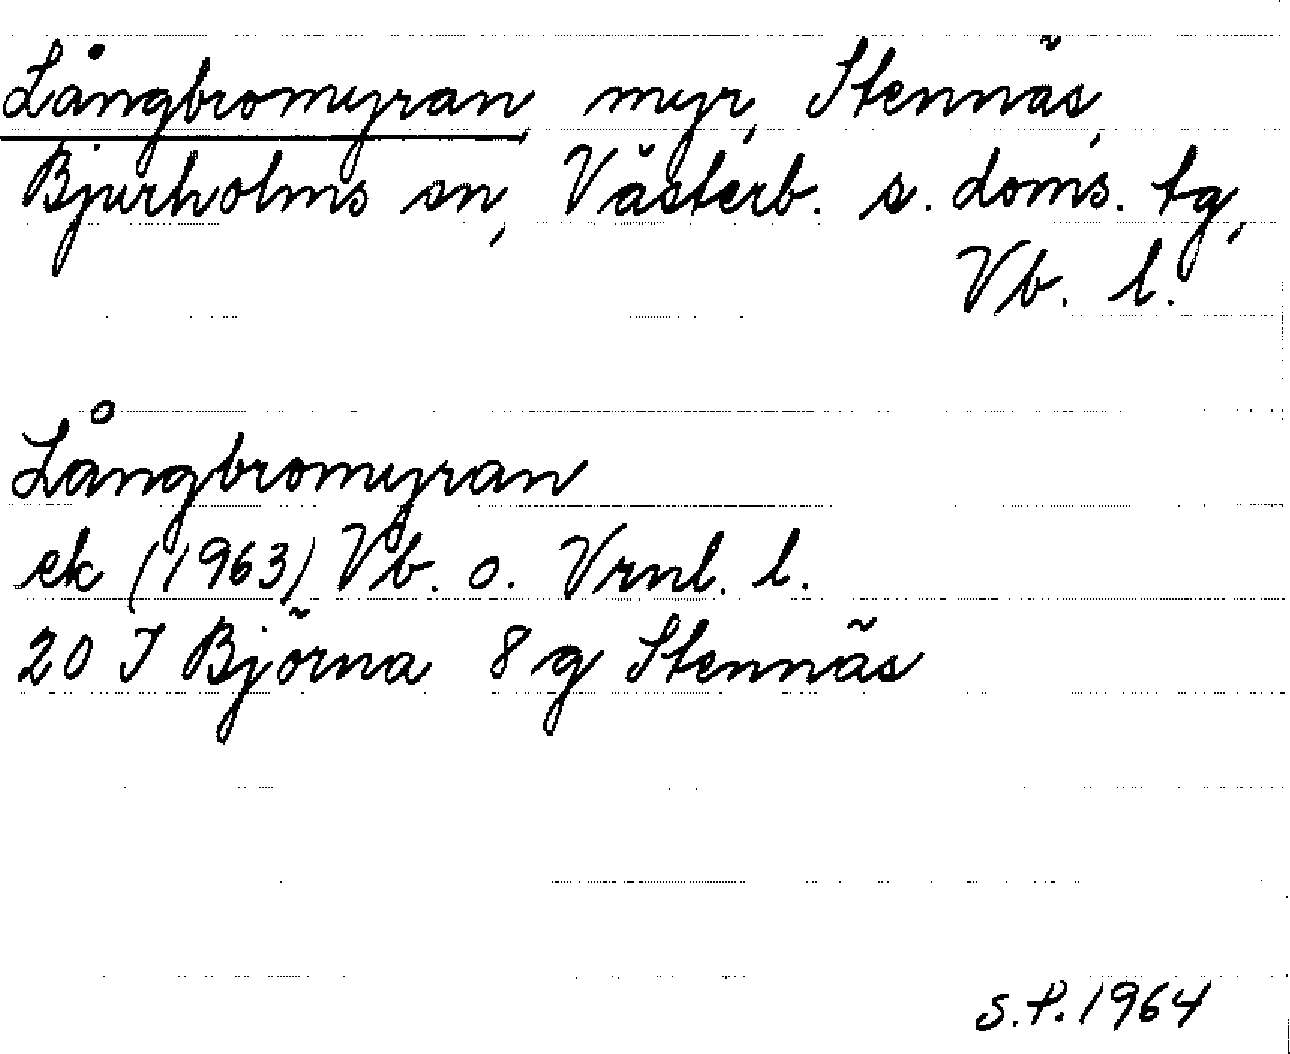 Långbromyran, myr, Stennäs,
Bjurholms sn, Västerb. s. doms. tg,
Vb. l.
Långbromyran
ek (1963) Vb. o. Vrnl. l.
20 J Björna 8 g Stennäs
S.P. 1964